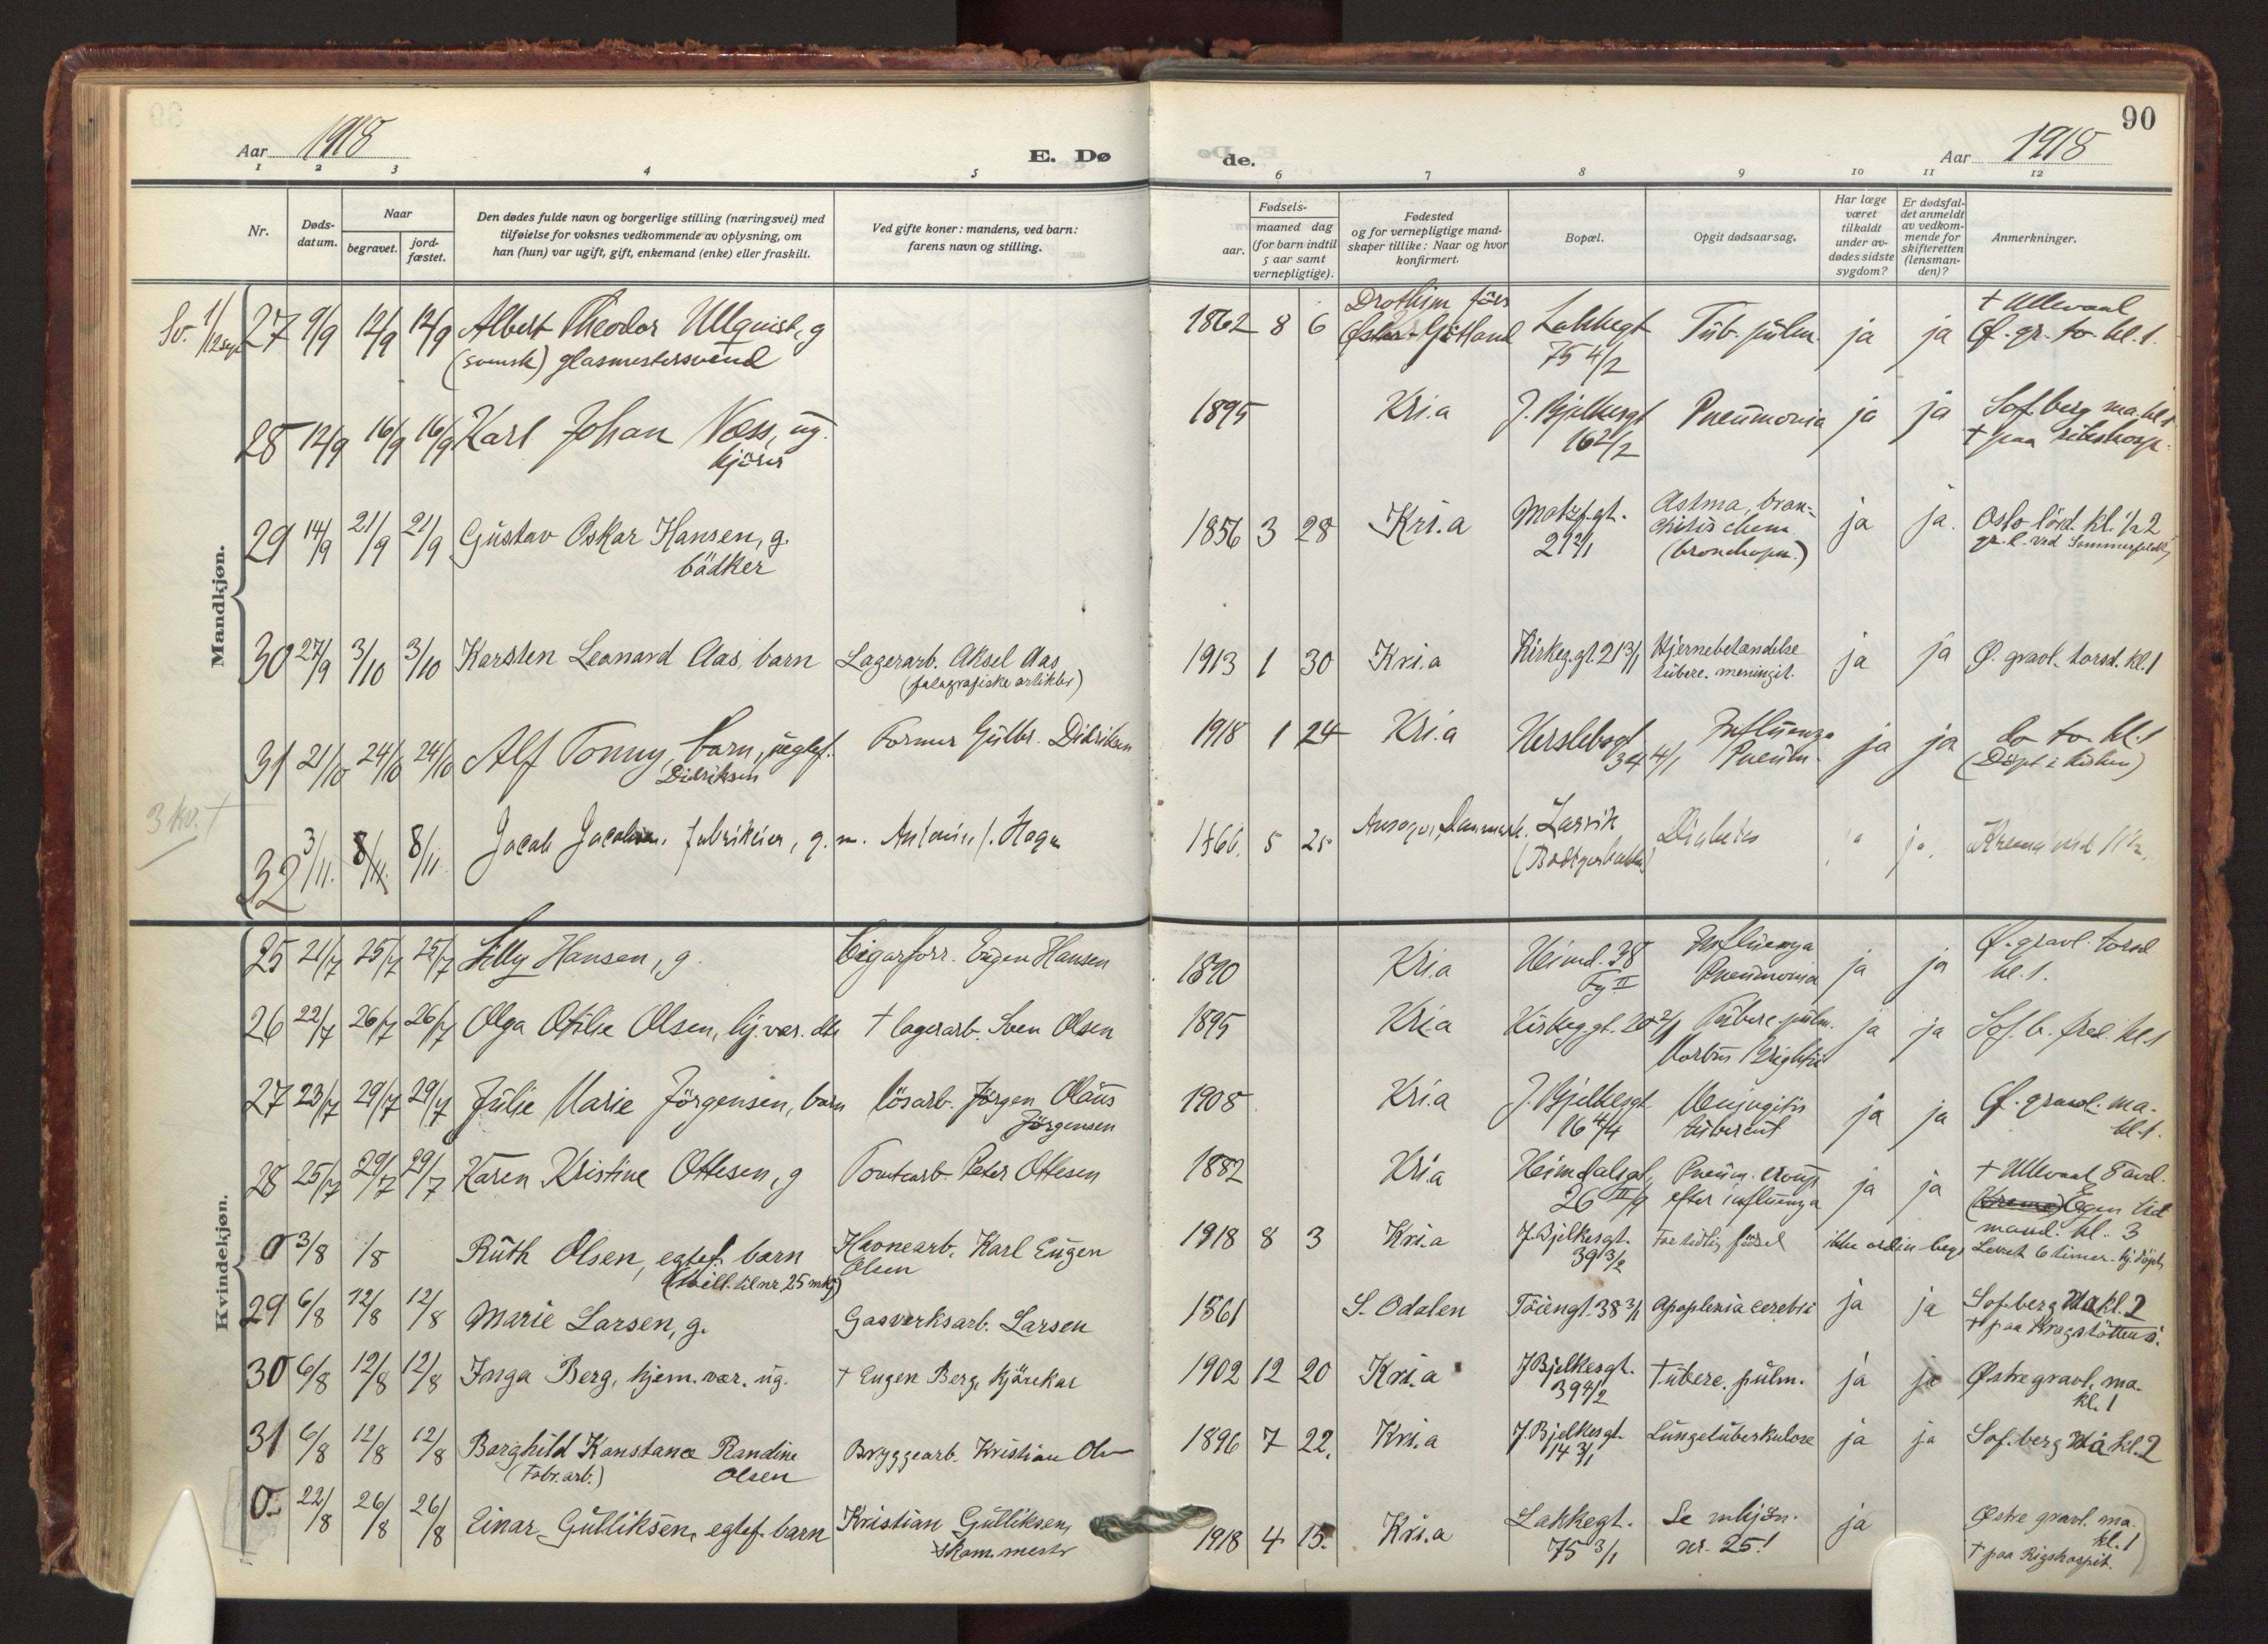 Aar 1918
E. Dø
de.
Aar 1918
90
1 2 3 4 5 6 7 8 9 10 11 12
Nr.
Døds-
datum.
Naar
begravet.
jord-
fæstet.
Den dødes fulde navn og borgerlige stilling (næringsvei) med
tilføielse for voksnes vedkommende av oplysning, om
han (hun) var ugift, gift, enkemand (enke) eller fraskilt.
Ved gifte koner: mandens, ved barn:
farens navn og stilling.
Fødsels-
aar.
maaned dag
(for barn indtil
5 aar samt
vernepligtige).
Fødested
og for vernepligtige mand-
skaper tillike: Naar og hvor
konfirmert.
Bopæl.
Opgit dødsaarsag.
Har læge
været
tilkaldt
under av-
dødes sidste
sygdom?
Er dødsfal-
det anmeldt
av vedkom-
mende for
skifteretten
(lensman-
den)?
Anmerkninger.
Mandkjøn.
27 9/9 12/9 12/9 Albert Theodor Ullquist, g 1862 8 6 Lakkegt Tub. pulm. ja ja † Ullevaal
(svensk) glasmestersvend Øster-Götland 75 4/2 Ø. gr. to. kl. 1.
28 12/9 16/9 16/9 Karl Johan Næss, ug. 1895 Kri.a J. Bjelkesgt Pneumonia ja ja Sof.berg ma. kl. 1
kjører 16 2/2 † paa
29 14/9 21/9 21/9 Gustav Oskar Hansen, g. 1856 3 28 Kri.a Motzf.gt. Astma, bron-
bødker 21 2/1 chitis chron. ja ja. Oslo lørd. kl. 1/2 2
(bronchopn.) gr. l. ved
30 27/9 3/10 3/10 Karsten Leonard Aas, barn Lagerarb. Aksel Aas 1913 1 30 Kri.a Kirkeg.gt. 21 3/1 Hjernebetændelse ja ja Ø. gravl. torsd. kl. 1
tuberc. meningit.
31 21/10 24/10 24/10 Alf Tonny, barn, uegtef. Former Gulbr. Didriksen 1918 1 24 Kri.a Herslebsgt Influenza ja ja do to. kl. 1
Didriksen 34 4/1 Pneum. (Døpt i kirken)
3 kv. †
32 3/11. 8/11. 8/11 Jacob Jacobsen, fabrikeier, g. m. 1866. 5 25 Larvik Diabetes
Kvindekjøn.
25 21/7 25/7 25/7 Lilly Hansen, g. Cigarforr. Eugen Hansen 1890 Kri.a Heimd. 38 Influenza ja ja Ø. gravl. torsd
Fg II Pneumonia kl. 1.
26 22/7 26/7 26/7 Olga Otilie Olsen, hj. vær. dtr † lagerarb. Sven Olsen 1895 Kri.a Kirkeg.gt. 20 2/1 Tuberc. pulm. ja ja Sof. b. fred. kl. 1
Morbus Brightii
27 23/7 29/7 29/7 Julie Marie Jörgensen, barn løsarb. Jörgen Olaus 1908 Kri.a J. Bjelkesgt Meningitis ja ja Ø. gravl. ma.
Jörgensen 16 4/4 tubercul kl. 1.
28 25/7 29/7 29/7 Karen Kristine Ottesen, g Tomtearb. Peter Ottesen 1882 Kri.a Heimdalsgt. Pneum. croup. ja ja † Ullevaal
26 II/1 efter influenza Egen tid
0 3/8 /8 Ruth Olsen, egtef. barn Havnearb. Karl Eugen 1918 8 3 Kri.a J. Bjelkesgt. For tidlig fødsel ikke ordin. begr mand. kl. 3
(tvill. til nr. 25 mkj) Olsen 39 3/2 Levet 6 timer. hj. døpt
29 6/8 12/8 12/8 Marie Larsen, g. Gasverksarb. Larsen 1861 S. Odalen Töiengt. 38 3/1 Apoplexia cerebri ja ja Sofberg Ma kl. 2
† paa
30 6/8 12/8 12/8 Inga Berg, hjem. vær. ug. † Eugen Berg, kjørekar 1902 12 20 Kri.a J Bjelkesgt. Tuberc. pulm. ja ja Østre gravl. ma.
39 4/2 kl. 1
31 6/8 12/8 12/8 Borghild Konstance Randine Bryggearb. Kristian Ols 1896 7 22. Kri.a J. Bjelkesgt. Lungetuberkulose ja ja Sof. berg Ma kl. 2
(Fabr. arb.) Olsen 14 3/1
0 22/8 26/8 26/8 Einar Gulliksen, egtef. barn Kristian Gulliksen, 1918 4 15. Kri.a Lakkegt. Se mkjøn. ja Østre gravl. ma.
75 3/1 nr. 25! kl. 1
† paa Rigshospit.